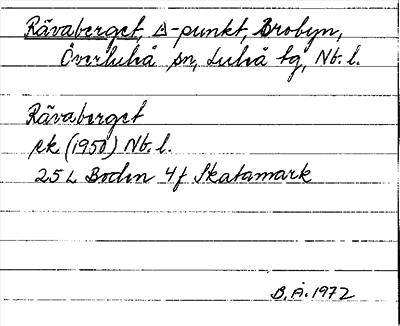 Rävaberget, △-punkt, Brobyn,
Överluleå sn, Luleå tg, Nb. l.
Rävaberget
ek (1950) Nb. l.
25 L Boden 4f Skatamark
B. Å. 1972